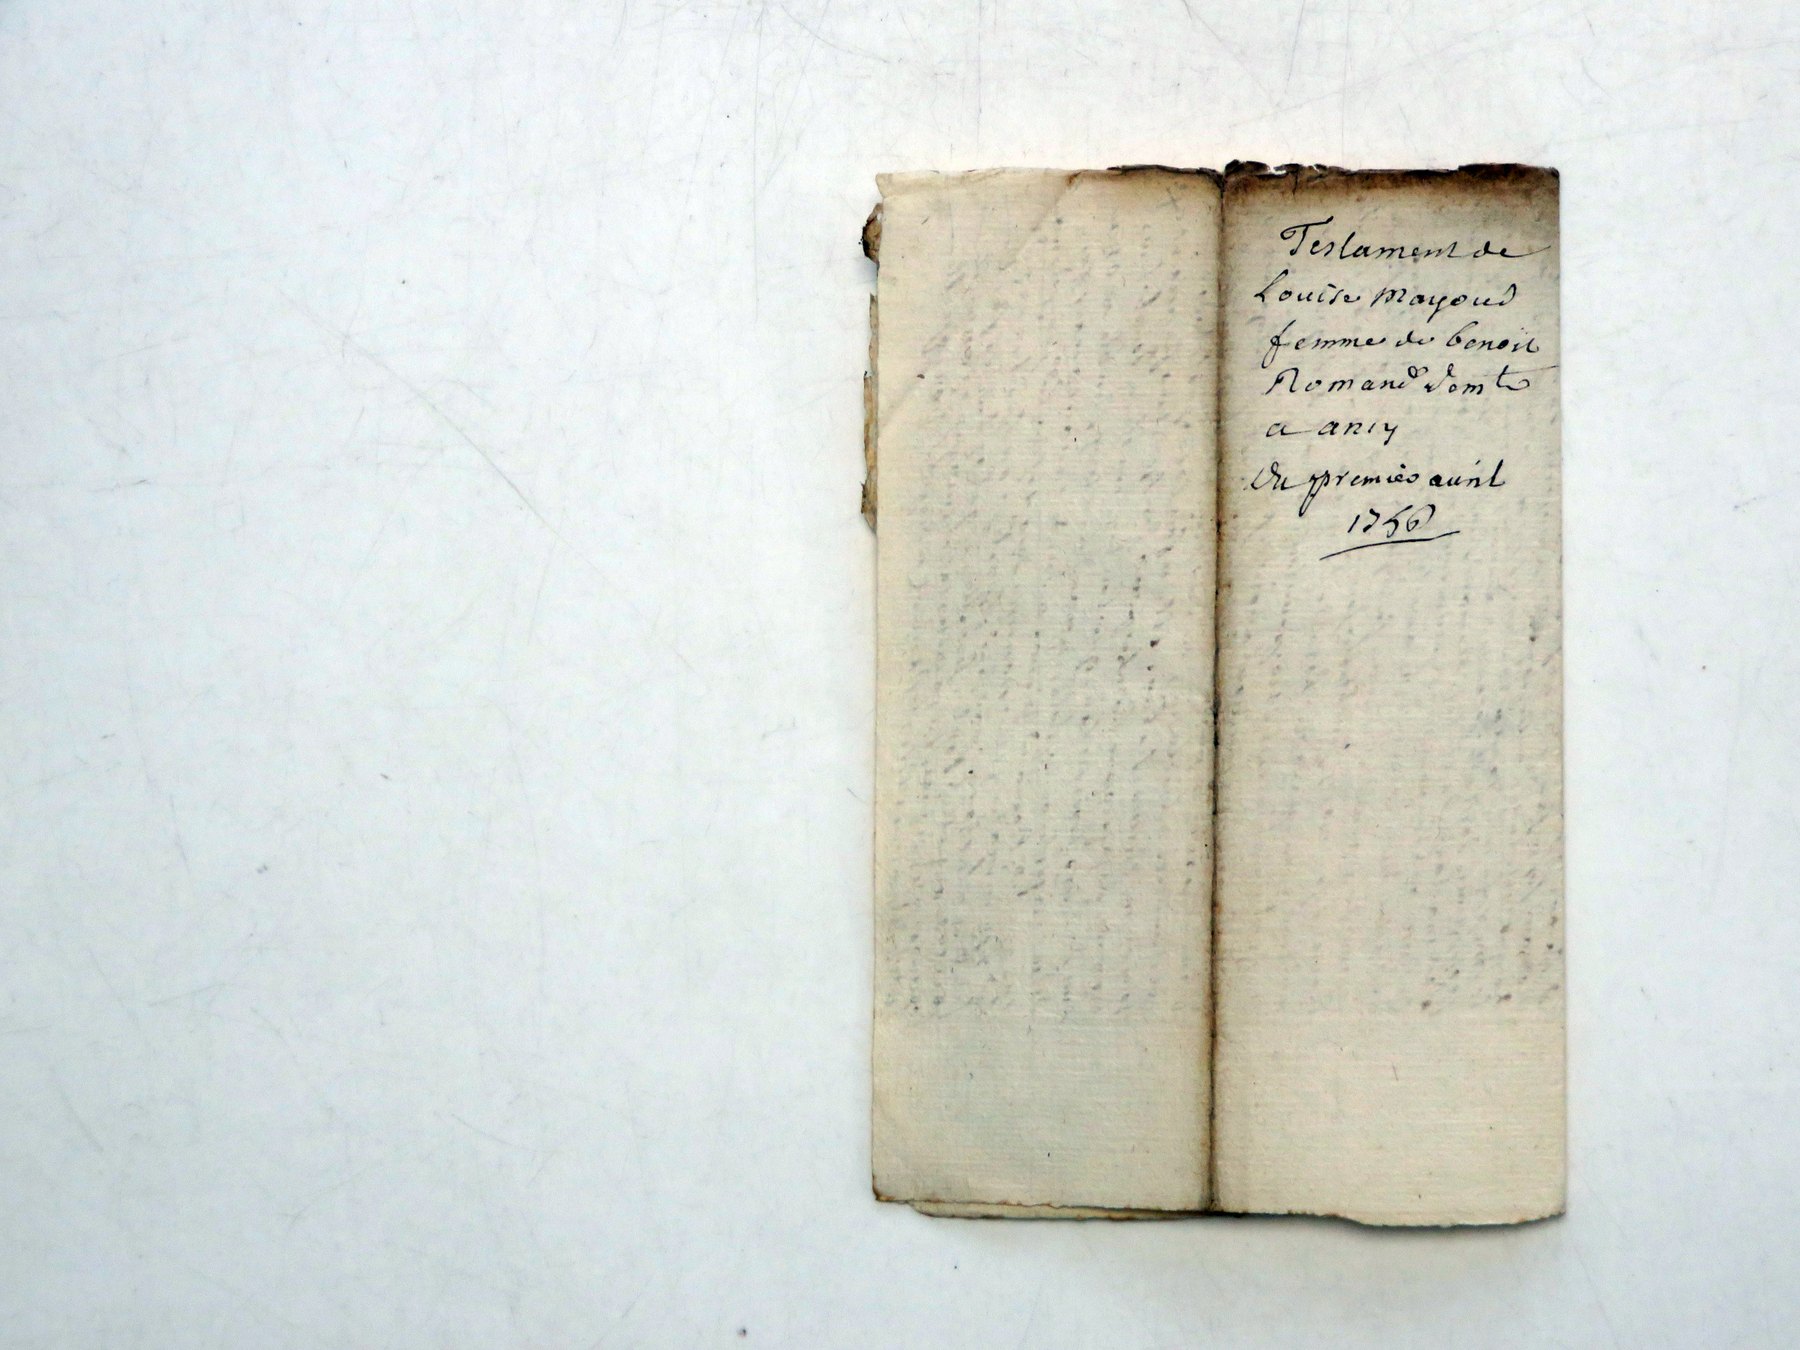 Testament de
Louise Mayoud
femme de benoit
Romand domte
a ancy
Du premier auril
1756